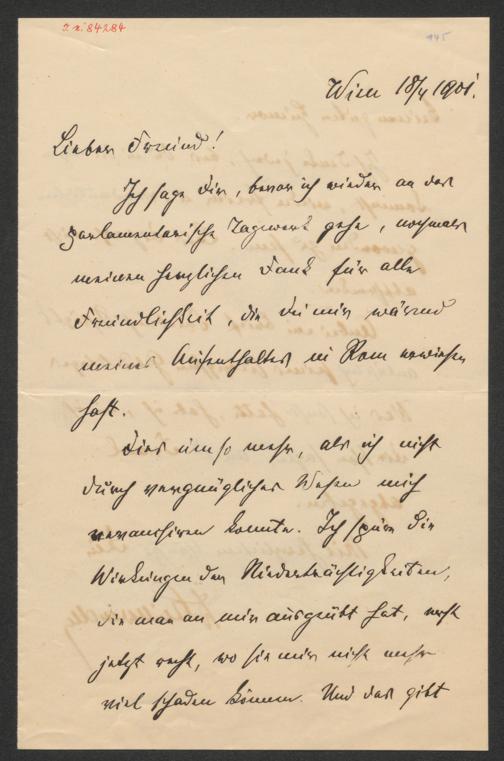 2. N. 84284
945
Wien 18/4 1901.
Lieber Freund!
Ich sage Dir, bevor ich wieder an das
parlamentarische Tagwerk gehe, nochmals
meinen herzlichen Dank für alle
Freundlichkeit, die Du mir während
meines Aufenthaltes in Rom erwiesen
hast.
Dies um so mehr, als ich nicht
durch vergnügliches Wesen mich
revanchiren konnte. Ich spüre die
Wirkungen der Niederträchtigkeiten,
die man an mir ausgeübt hat, erst
jetzt recht, wo sie mir nicht mehr
viel schaden können. Und das gibt